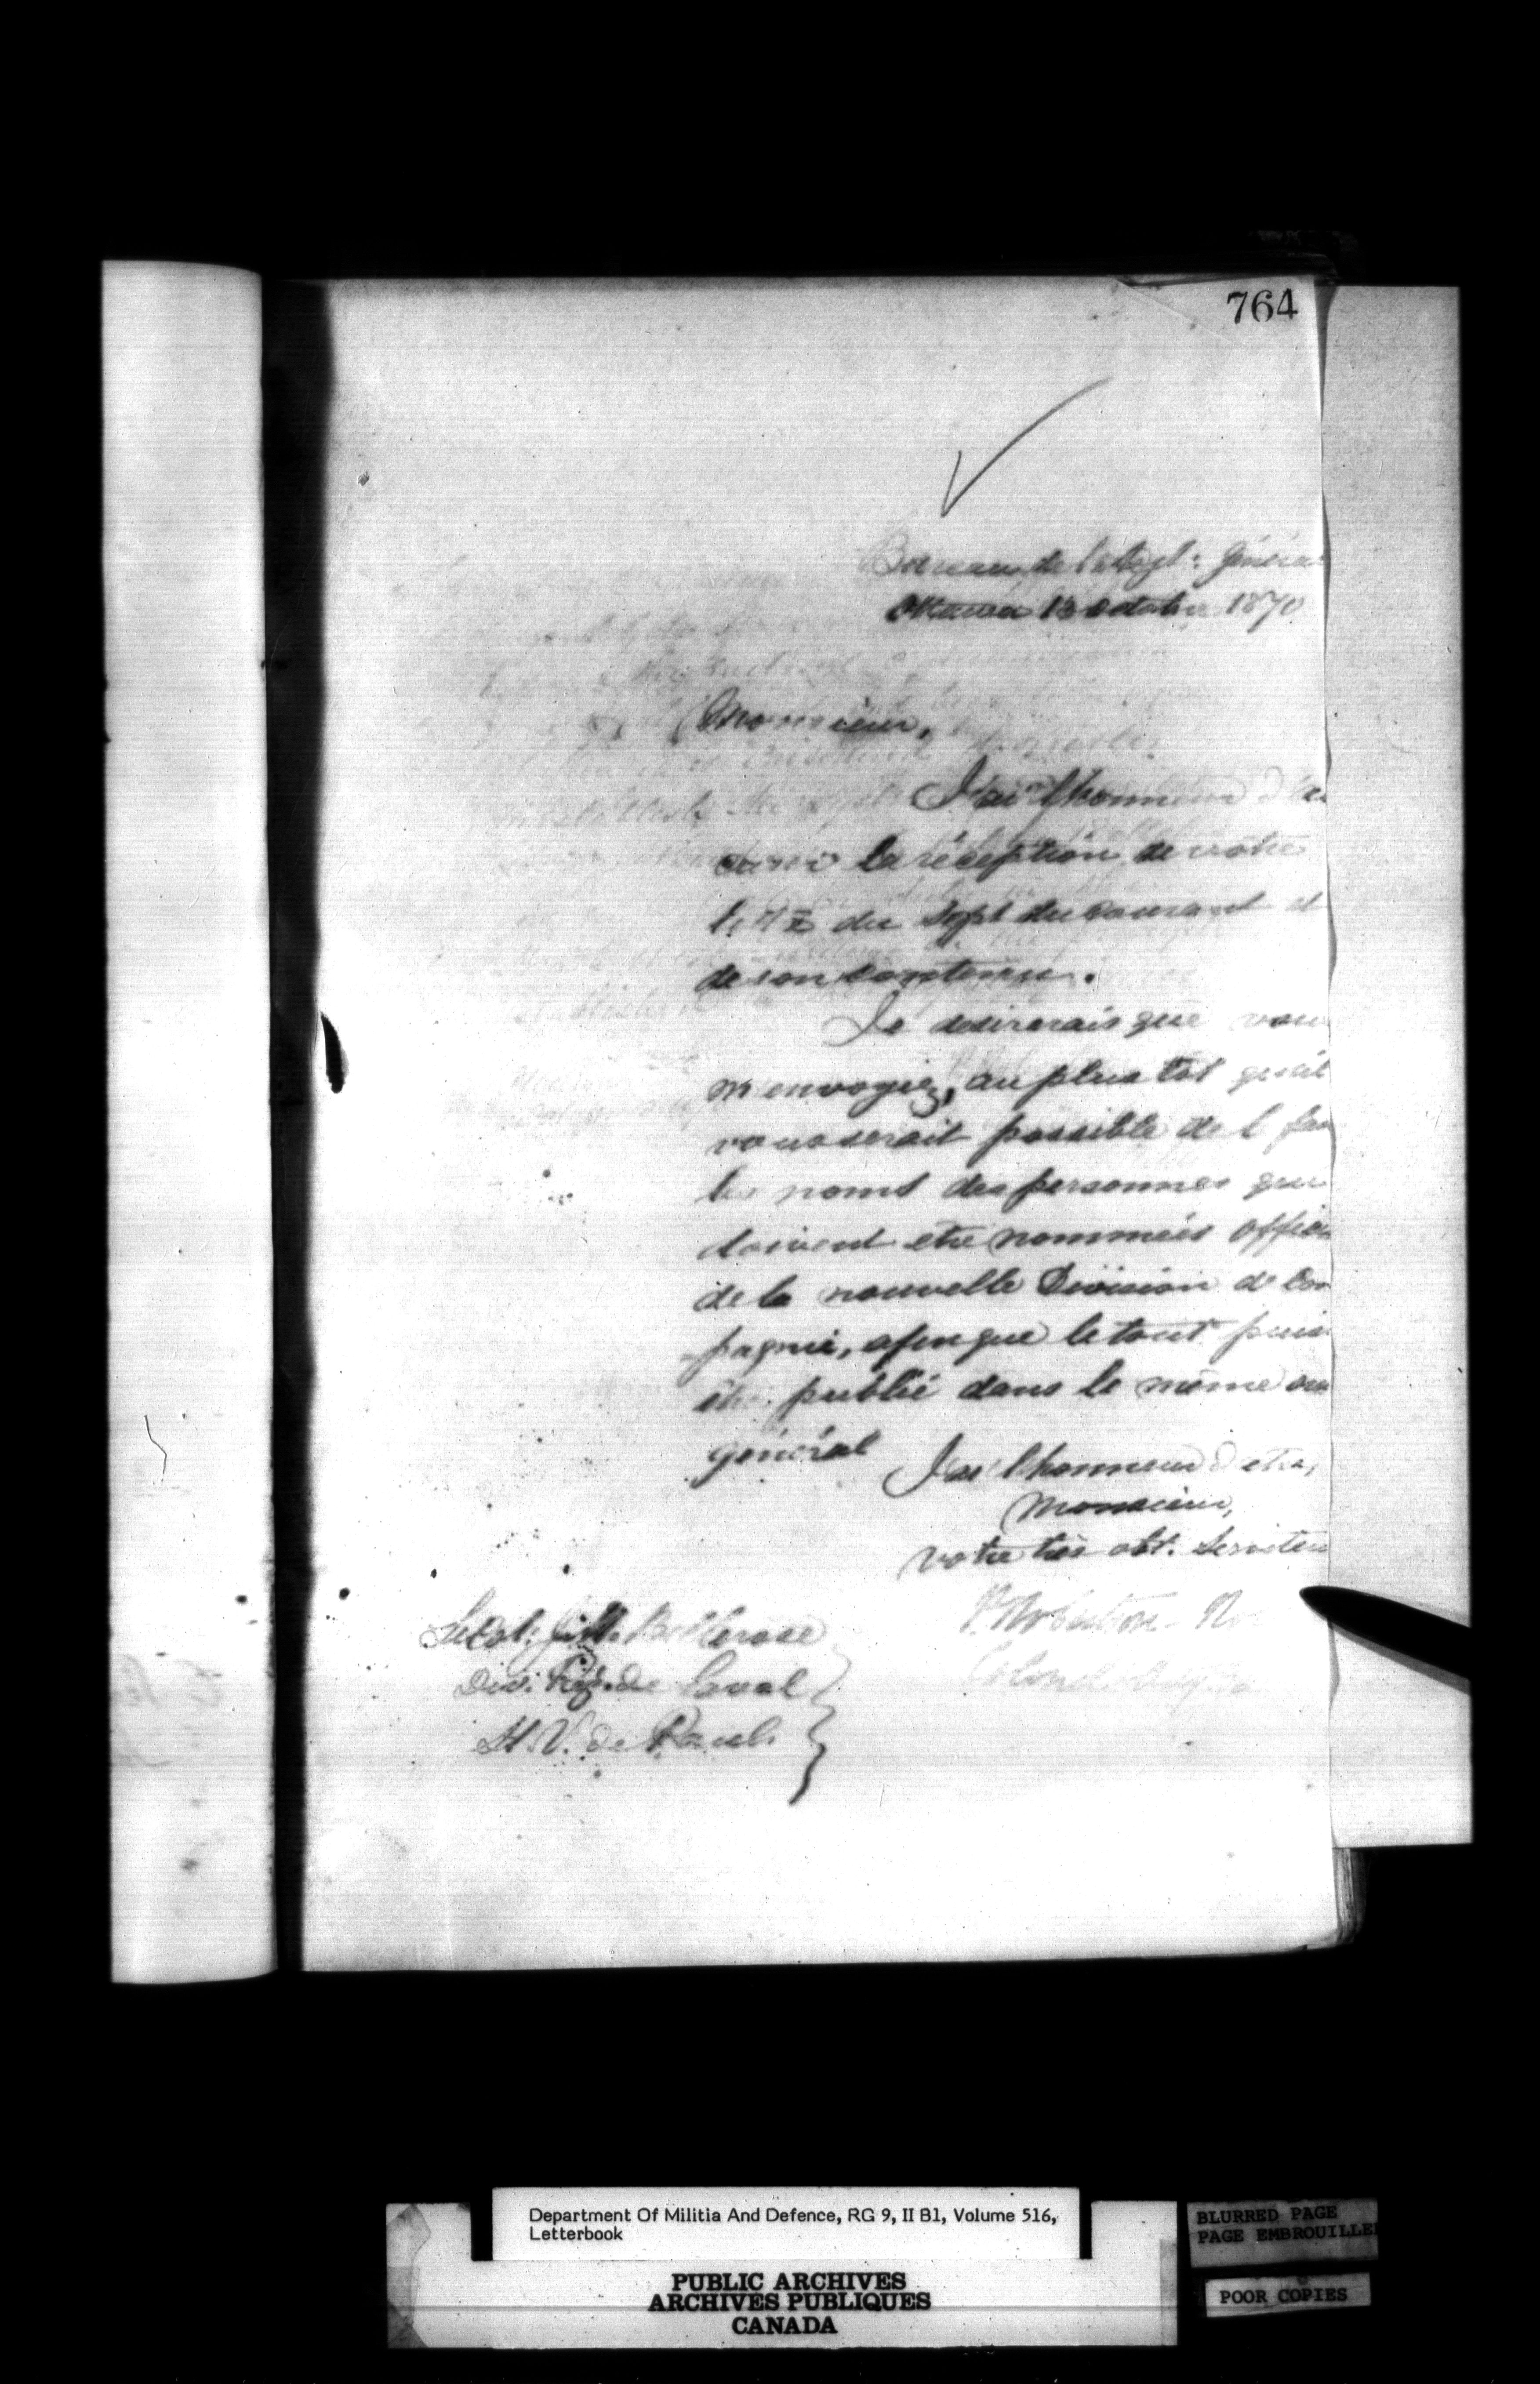 764
Bureau de l'Adjt: Général
Ottawa 13 octobre 1870
Monsieur,
J'ai l'honneur d'
la réception de votre
du Sept du courant et
de son contenu.
Je desirerais que vous
m'envoyiez, au plus tot qu'il
vous serait possible de l
les noms des personnes qui
doivent etre nommées offici
de la nouvelle Division de Com
pagnie, afin que le tout puis
être publié dans le même
général
J'ai l'honneur d'etre,
Monsieur,
votre très obt. Serviteu
P. Robertson-Ro
Colonel
Lt Col: J. H. Bellerose
Div. Rég. de Laval
St. V. de Paul
Department Of Militia And Defence, RG 9, II B1, Volume 516,
Letterbook
PUBLIC ARCHIVES
ARCHIVES PUBLIQUES
CANADA
BLURRED PAGE
PAGE EMBROUILLE
POOR COPIES